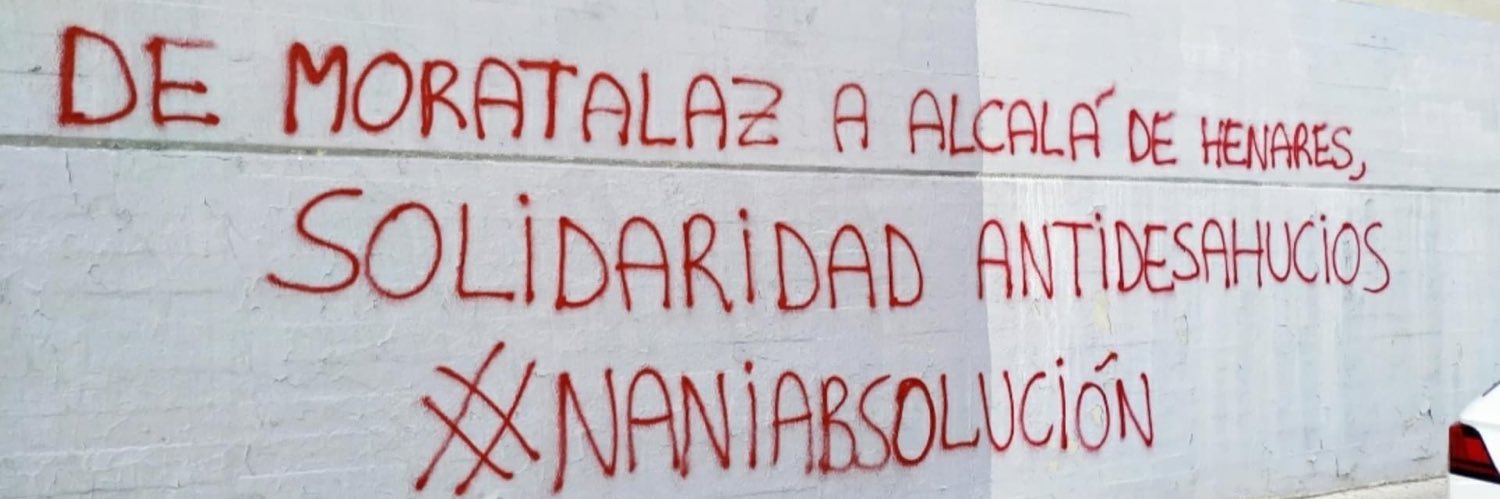 DE MORATALAZ A ALCALÁ DE HENARES,
SOLIDARIDAD ANTIDESAHUCIOS
#NANIABSOLUCIÓN